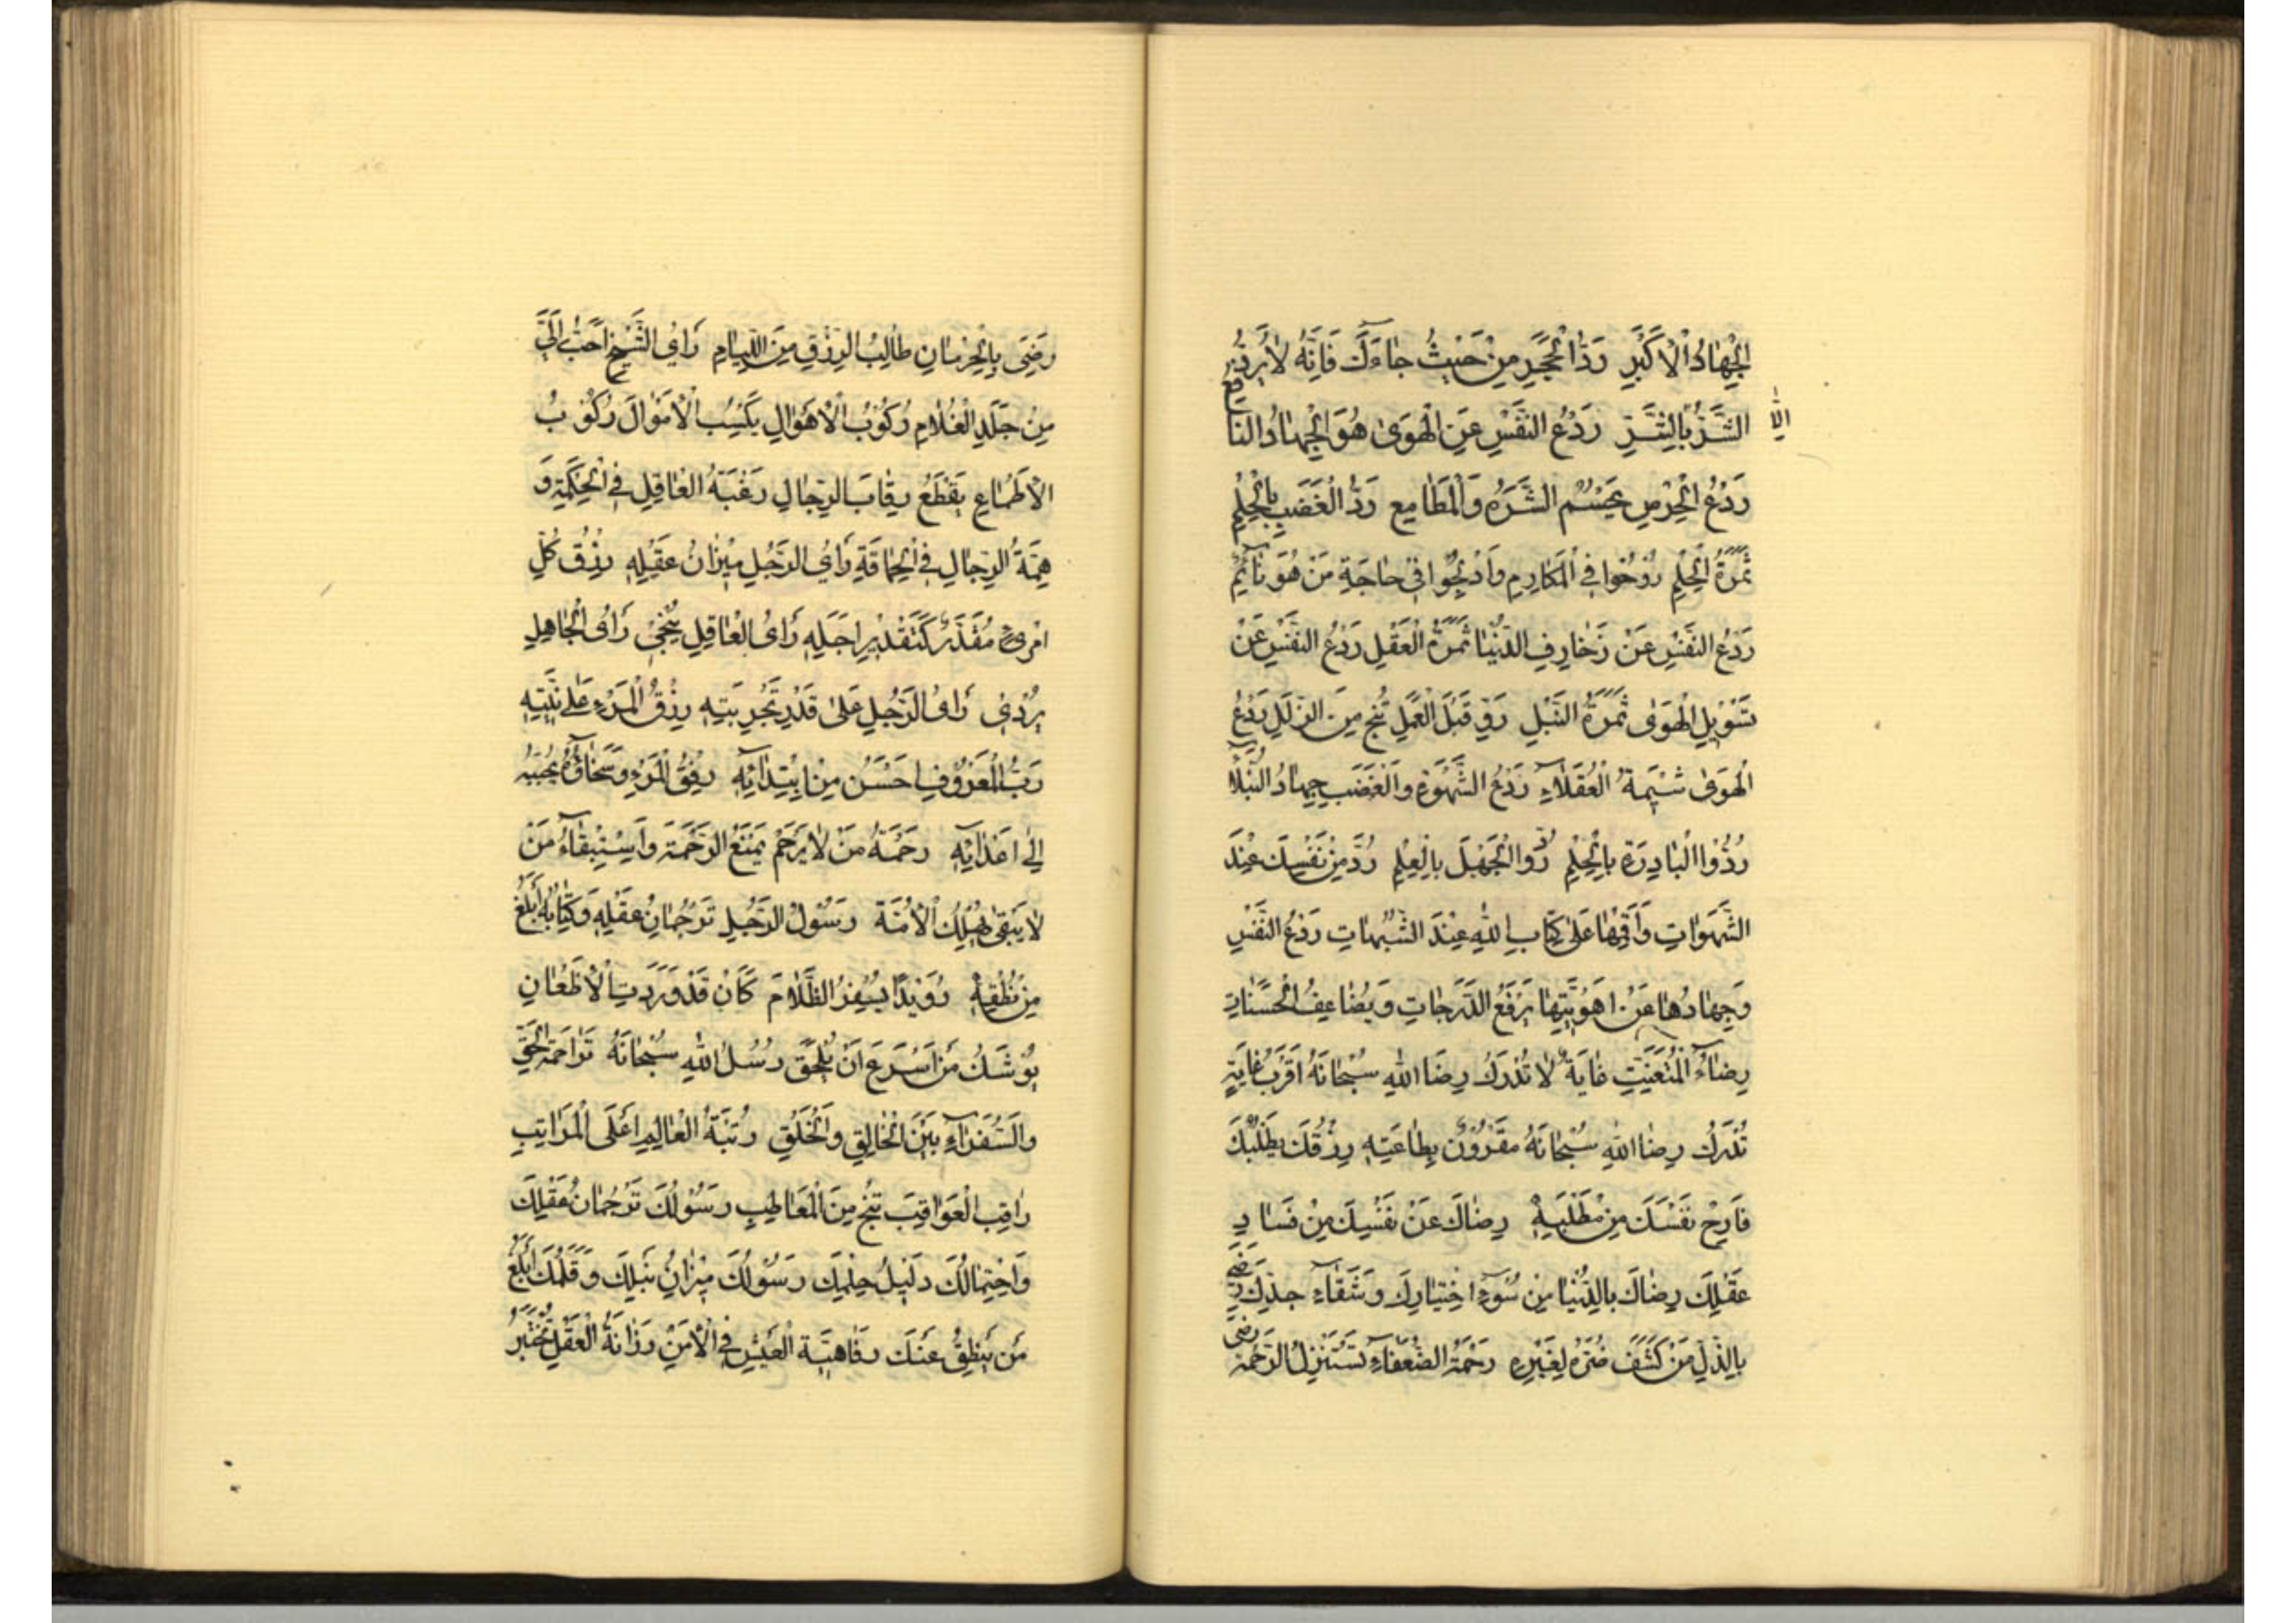 الْجِهَادُ الْأَكْبَرِ رَدُّ الْحَجَرِ مِنْ حَيْثُ جَاءَكَ فَإِنَّهُ لَا يُرَدُّ
إلّا
الشَّرُّ بِالشَّرِّ رَدْعُ النَّفْسِ عَنِ الْهَوَى هُوَ الْجِهَادُ النَّافِعُ
رَدْعُ الْحِرْصِ يَحْسُمُ الشَّرَهَ وَالْمَطَامِعَ رَدُّ الْغَضَبِ بِالْحِلْمِ
ثَمَرَةُ الْحِلْمِ رُوحُوا فِي الْمَكَارِمِ وَأَدْلِجُوا فِي حَاجَةِ مَنْ هُوَ نَائِمٌ
رَدْعُ النَّفْسِ عَنْ زَخَارِفِ الدُّنْيَا ثَمَرَةُ الْعَقْلِ رَدْعُ النَّفْسِ عَنْ
تَسْوِيلِ الْهَوَى ثَمَرَةُ النُّبْلِ رَوِّ قَبْلَ الْعَمَلِ تُنْجِ مِنَ الزَّلَلِ رَدْعُ
الْهَوَى شَيْمَةُ الْعُقَلَاءِ رَدْعُ الشَّهْوَةِ وَالْغَضَبِ جِهَادُ النُّبَلَاءِ
رُدُّوا الْبَادِرَةَ بِالْحِلْمِ رُدُّوا الْجَهْلَ بِالْعِلْمِ رُدَّ مِنْ نَفْسِكَ عِنْدَ
الشَّهَوَاتِ وَأَقِمْهَا عَلَى كِتَابِ اللهِ عِنْدَ الشُّبُهَاتِ رَدْعُ النَّفْسِ
وَجِهَادُهَا عَنْ اَهْوِيَتِهَا يَرْفَعُ الدَّرَجَاتِ وَيُضَاعِفُ الْحَسَنَاتِ
رِضَاءُ الْمُتَعَنِّتِ غَايَةٌ لَا تُدْرَكُ رِضَا اللهِ سُبْحَانَهُ اَقْرَبُ غَايَةٍ
تُدْرَكُ رِضَا اللهِ سُبْحَانَهُ مَقْرُونٌ بِطَاعَتِهِ رِزْقُكَ يَطْلُبُكَ
فَأَرِحْ نَفْسَكَ مِنْ طَلَبِهِ رِضَاكَ عَنْ نَفْسِكَ مِنْ فَسَادِ
عَقْلِكَ رِضَاكَ بِالدُّنْيَا مِنْ سُوءِ اخْتِيَارِكَ وَشَقَاءِ جَدِّكَ رَضِيَ
بِالذُّلِّ مَنْ كَشَفَ ضُرَّهُ لِغَيْرِهِ رَحْمَةُ الضُّعَفَاءِ تَسْتَنْزِلُ الرَّحْمَةَ
رَضِيَ بِالْحِرْمَانِ طَالِبُ الرِّزْقِ مِنَ اللِّئَامِ رَأْيُ الشَّيْخِ اَحَبُّ إِلَيَّ
مِنْ جَلَدِ الْغُلَامِ رُكُوبُ الْأَهْوَالِ يَكْسِبُ الْأَمْوَالَ رُكُوبُ
الْأَطْمَاعِ يَقْطَعُ رِقَابَ الرِّجَالِ رَغْبَةُ الْعَاقِلِ فِي الْحِكْمَةِ وَ
هِمَّةُ الرِّجَالِ فِي الْحِمَاقَةِ رَأْيُ الرَّجُلِ مِيْزَانُ عَقْلِهِ رِزْقُ كُلِّ
امْرِئٍ مُقَدَّرٌ كَتَقْدِيرِ اَجَلِهِ رَأْيُ الْعَاقِلِ يُنْجِي رَأْيُ الْجَاهِلِ
يُرْدِي رَأْيُ الرَّجُلِ عَلَى قَدْرِ تَجْرِبَتِهِ رِزْقُ الْمَرْءِ عَلَى نِيَّتِهِ
رَبُّ الْمَعْرُوفِ اَحْسَنُ مِنِ ابْتِدَائِهِ رِفْقُ الْمَرْءِ وَسَخَاؤُهُ يُحَبِّبُهُ
إِلَى اَعْدَائِهِ رَحْمَةُ مَنْ لَا يَرْحَمُ يَمْنَعُ الرَّحْمَةَ وَاسْتِبْقَاءُ مَنْ
لَا يَبْقَى يُهْلِكُ الْأُمَّةَ رَسُولُ الرَّجُلِ تَرْجُمَانُ عَقْلِهِ وَكِتَابُهُ أَبْلَغُ
مِنْ نُطْقِهِ رُوَيْدًا يُسْفِرُ الظَّلَامُ كَأَنْ قَدْ وَرَدَتِ الْأَظْعَانُ
يُوشَكُ مَنْ اَسْرَعَ اَنْ يَلْحَقَ رُسُلُ اللهِ سُبْحَانَهُ تَرَاجِمَةُ الْحَقِّ
وَالسُّفَرَاءُ بَيْنَ الْخَالِقِ وَالْخَلْقِ رُتْبَةُ الْعَالِمِ اَعْلَى الْمَرَاتِبِ
رَاقِبِ الْعَوَاقِبَ تَنْجُ مِنَ الْمَعَاطِبِ رَسُولُكَ تَرْجُمَانُ عَقْلِكَ
وَاحْتِمَالُكَ دَلِيلُ حِلْمِكَ رَسُولُكَ مِيْزَانُ نُبْلِكَ وَقَلَمُكَ أَبْلَغُ
مَنْ يَنْطِقُ عَنْكَ رَفَاهِيَّةُ الْعَيْشِ فِي الْأَمْنِ رَزَانَةُ الْعَقْلِ تُخْتَبَرُ